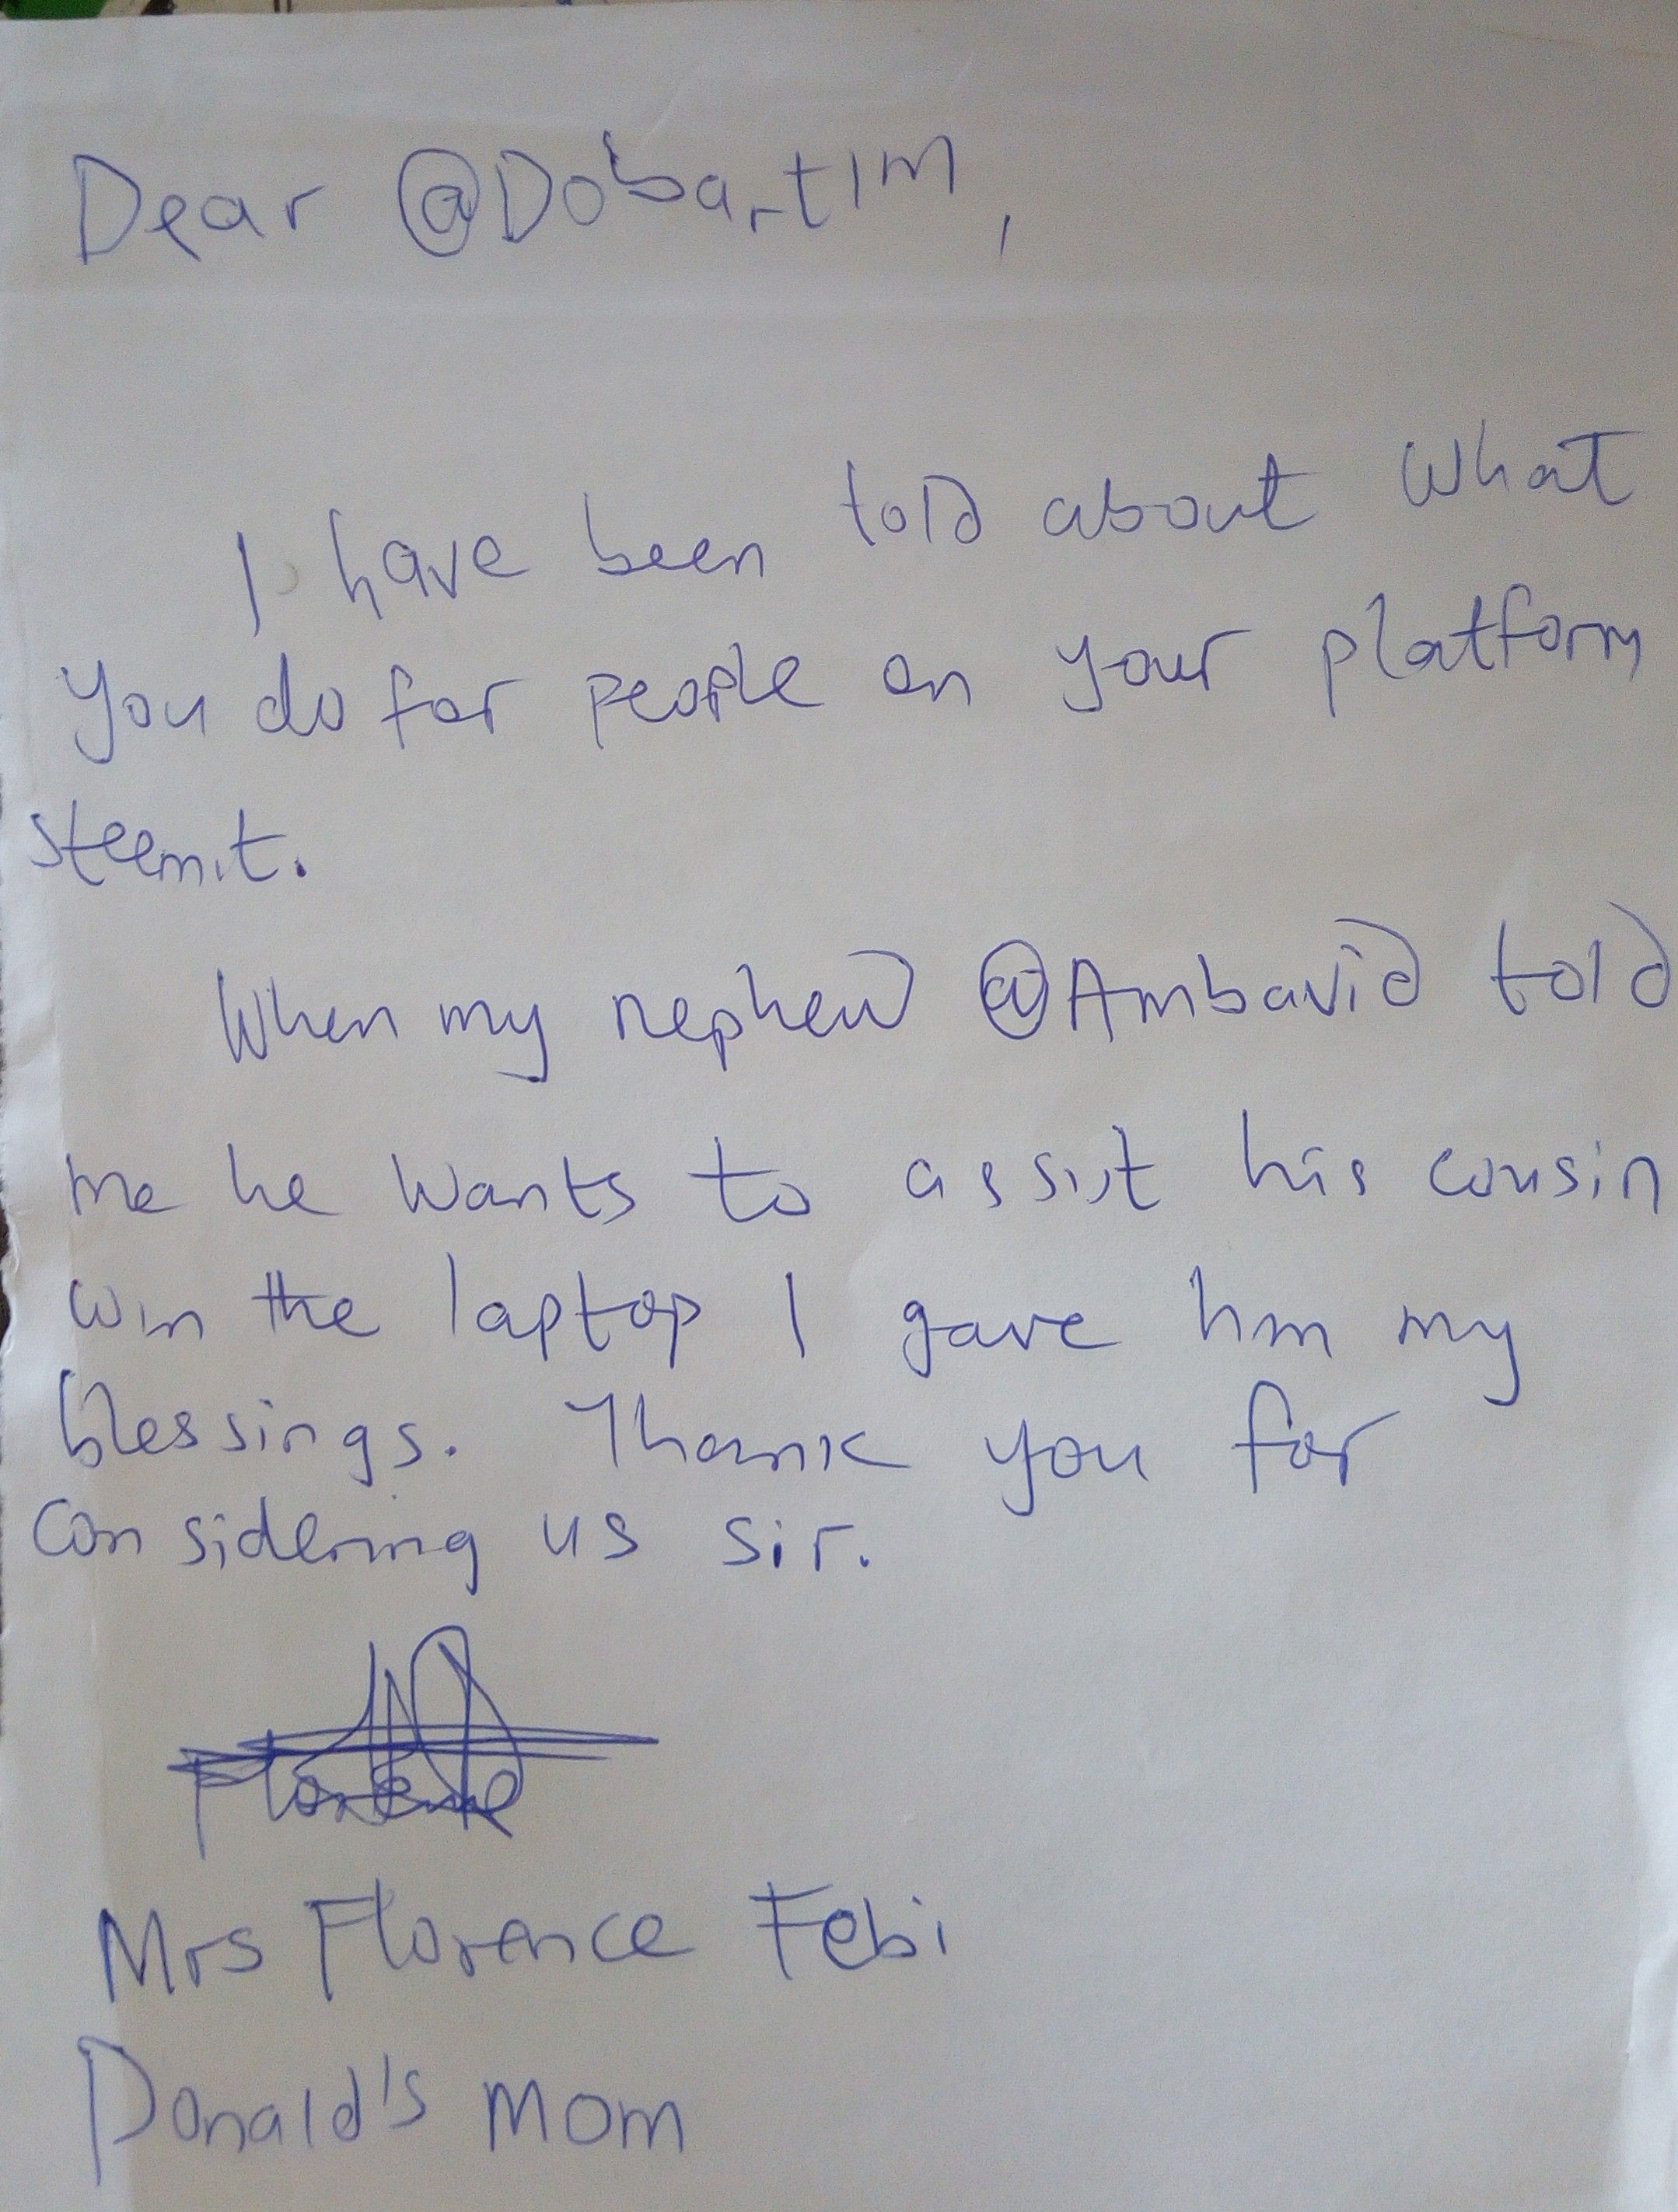 Dear @Dobartim,
I have been told about what
you do for people on your platform
steemit.
When my nephew @Ambavid told
me he wants to assist his cousin
win the laptop I gave him my
blessings. Thank you for
considering us sir.
Florence
Mrs Florence Febi
Donald's Mom